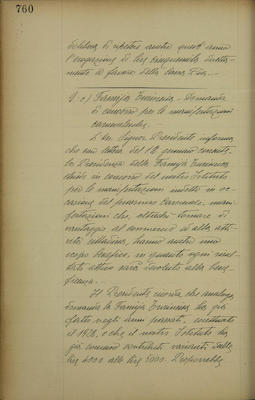 760
delibera di ripetere anche quest'anno
l'erogazione di lire cinquecento diretta-
mente a favore della
9°- c) Famija Turineisa - Domanda
di concorso per le manifestazioni
carnevalesche. -
L'On. Signor Presidente informa,
che con lettera del 12 gennaio corrente
la Presidenza della Famija Turineisa
chiede il concorso del nostro Istituto
per le manifestazioni indette in oc-
casione del prossimo Carnevale, mani-
festazioni che, oltreché tornare di
vantaggio al commercio ed alle atti-
vità cittadine, hanno anche uno
scopo benefico, in quanto ogni resi-
duo attivo sarà devoluto alla bene-
ficenza. -
Il Presidente ricorda che analoga
domanda la Famija Turineisa ha già
fatto negli anni passati,
il 1928, e che il nostro Istituto ha
già concesso contributi varianti dalle
lire 4000 alle lire 5000. Proporrebbe